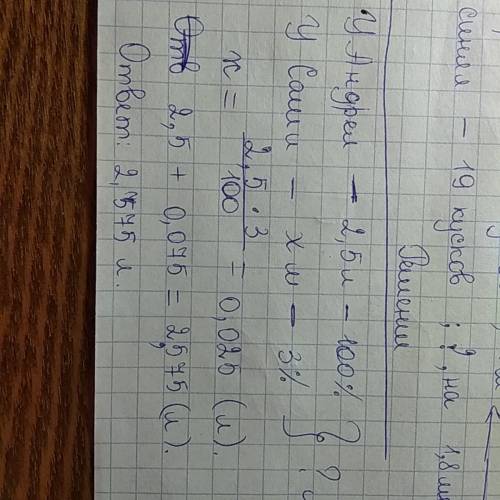 синия - 19 кусков ; ?, на 1,8 м
Решение
У Андрея - 2,5 м - 100%
У Саши - x м - 3% ?
x = 2,5 · 3 / 100 = 0,025 (м).
2,5 + 0,075 = 2,575 (м).
Ответ: 2,575 м.